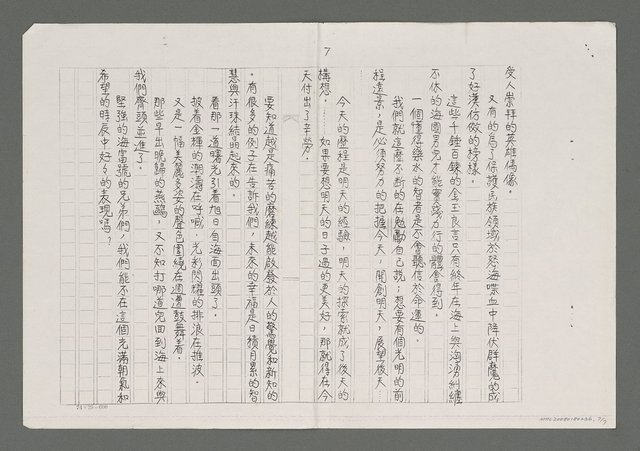 7
受人崇拜的英雄偶像。
又有的為了保護民族領域於怒海喋血中降伏群魔的成
了好漢仿傚的榜樣。
這些千錘百鍊的金玉良言只有終年在海上與洶湧糾纏
不休的海國男兒才能實踐力行的體會得到。
一個懂得藥水的智者是不會聽信於命運的。
我們就這麼不斷的在勉勵自己說；想要有個光明的前
程遠景，是必須努力的把握今天，開創明天，展望後天……
今天的歷程是明天的經驗，明天的探索就成了後天的
構想……如果要想明天的日子過的更美好，那就得在今
天付出了辛勞。
要知道越是痛苦的磨練越能啟發於人的警覺和新知的
。有很多的例子在告訴我們，未來的幸福是日積月累的智
慧與汗珠結晶起來的。
看那一道曙光引着旭日自海面出頭了。
披着金輝的潮濤在呼喊，光彩閃耀的排浪在推波。
又是一幅美麗多姿的聲色圍繞在週邊鼓舞着。
那些早出晚歸的燕鷗，又不知打哪道兒回到海上來與
我們齊頭並進了。
堅強的海富號的兄弟們，我們能不在這個充滿朝氣和
希望的時辰中好々的表現嗎？
24×25=600